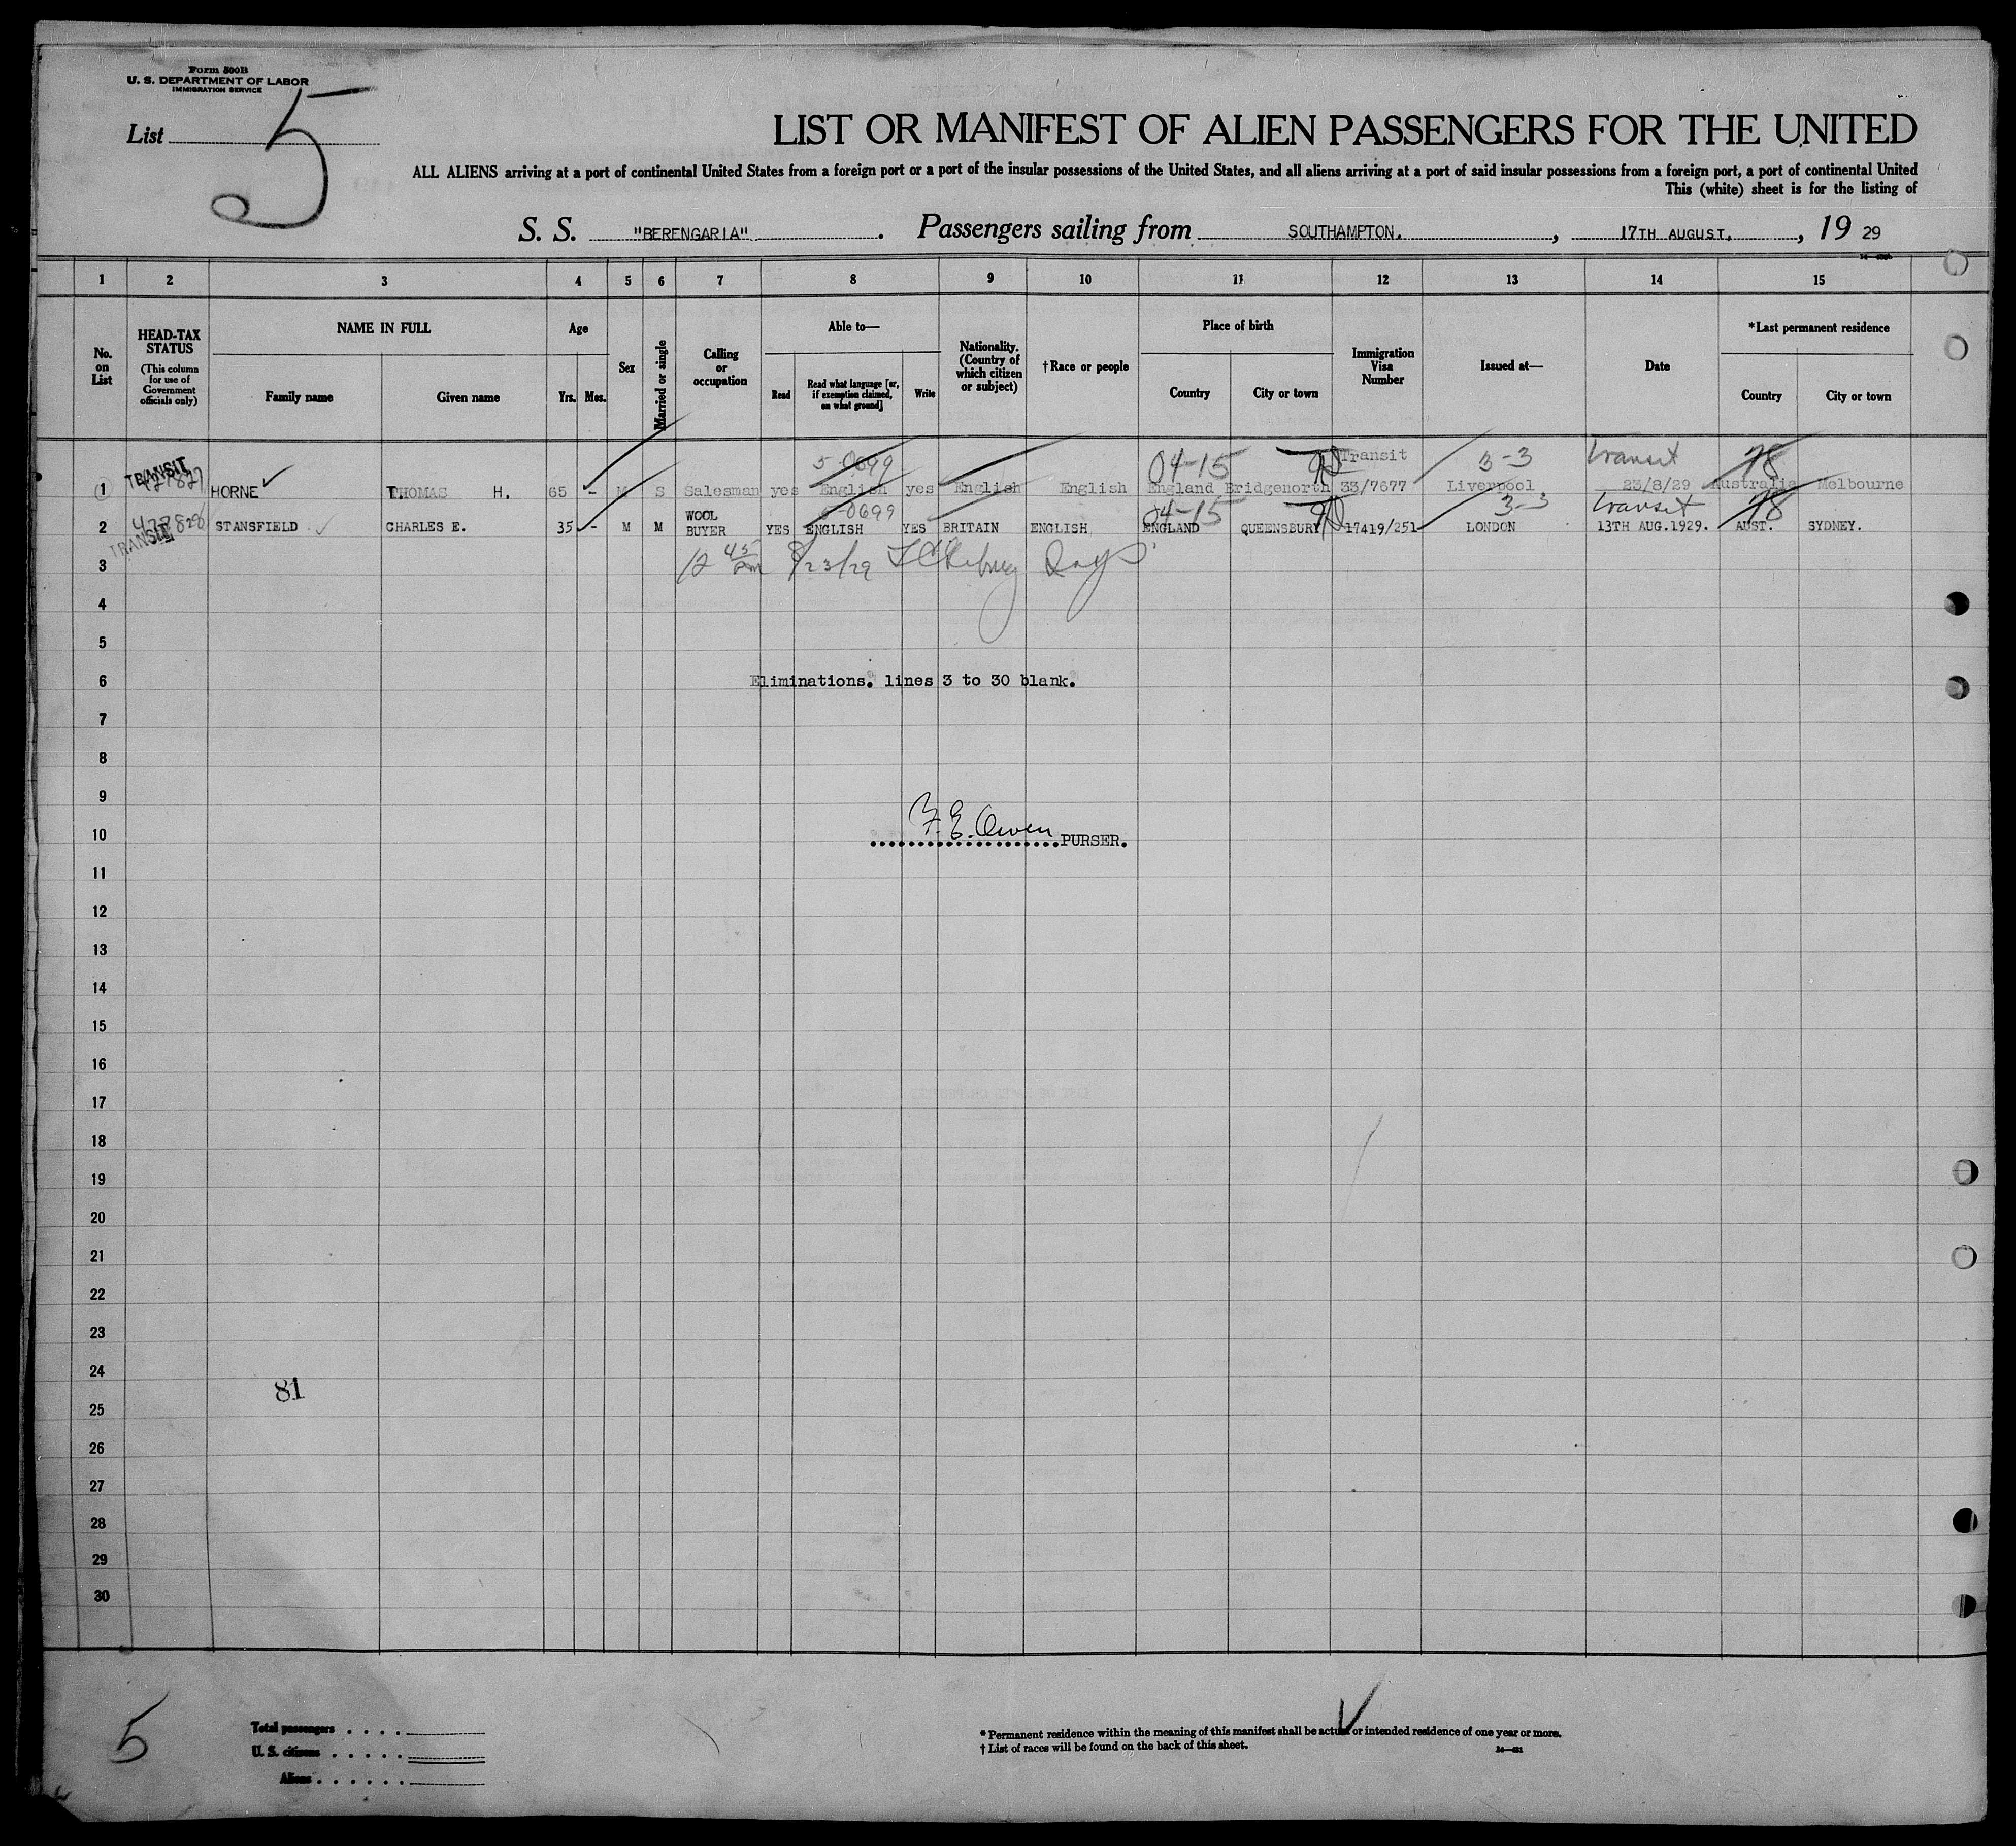 Form 500B
U. S. DEPARTMENT OF LABOR
IMMIGRATION SERVICE
List 5
LIST OR MANIFEST OF ALIEN PASSENGERS FOR THE UNITED
ALL ALIENS arriving at a port of continental United States from a foreign port or a port of the insular possessions of the United States, and all aliens arriving at a port of said insular possessions from a foreign port, a port of continental United
This (white) sheet is for the listing of
S. S. "BERENGARIA". Passengers sailing from SOUTHAMPTON. , 17TH AUGUST. , 19 29
1 2 3 4 5 6 7 8 9 10 11 12 13 14 15
No. on List
HEAD-TAX STATUS (This column for use of Government officials only)
NAME IN FULL
Family name Given name
Age
Yrs. Mos.
Sex
Married or single
Calling or occupation
Able to—
Read Read what language [or, if exemption claimed, on what ground] Write
Nationality. (Country of which citizen or subject)
†Race or people
Place of birth
Country City or town
Immigration Visa Number
Issued at—
Date
*Last permanent residence
Country City or town
TRANSIT 5-0699 04-15 Transit 3-3 transit 78
1 HORNE THOMAS H. 65 - M S Salesman yes English yes English English England Bridgenorth 33/7677 Liverpool 23/8/29 Australia Melbourne
5-0699 04-15 3-3 transit 78
2 TRANSIT STANSFIELD CHARLES E. 35 - M M WOOL BUYER YES ENGLISH YES BRITAIN ENGLISH ENGLAND QUEENSBURY 17419/251 LONDON 13TH AUG.1929. AUST. SYDNEY.
3 12 45 pm 8/23/29
4
5
6 Eliminations. lines 3 to 30 blank.
7
8
9
10 F. E. Owen PURSER.
11
12
13
14
15
16
17
18
19
20
21
22
23
24
81
25
26
27
28
29
30
5
Total passengers
U. S. citizens
Aliens
* Permanent residence within the meaning of this manifest shall be actual or intended residence of one year or more.
† List of races will be found on the back of this sheet.